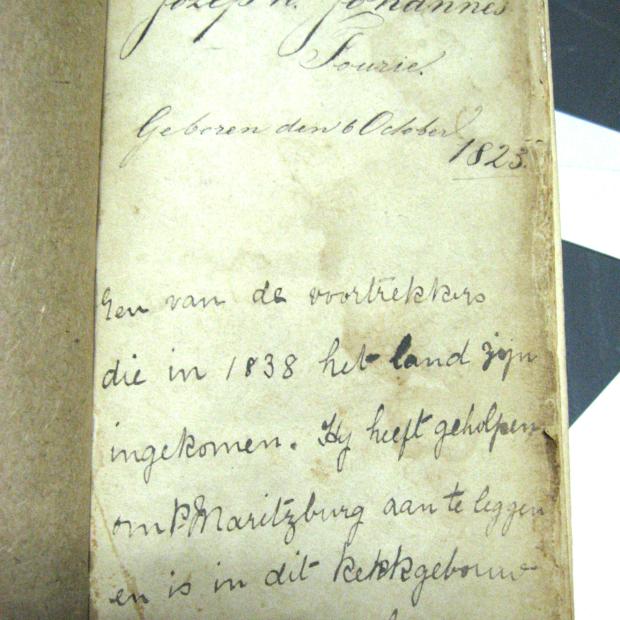 Jozep h. Johannes
Fourie.
Geboren den 6 October
1825.
Een van de voortrekkers
die in 1838 het land zijn
ingekomen. Hy heeft geholpen
om P. Maritzburg aan te leggen
en is in dit kekkgebouw